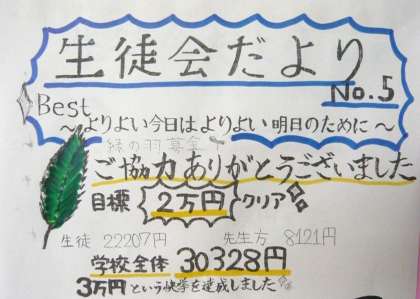 生徒会だより
No.5
Best
～よりよい今日はよりよい明日のために～
緑の羽募金
ご協力ありがとうございました
目標 2万円 クリア
生徒 22207円 先生方 8121円
学校全体 30328円
3万円という快挙を達成しました